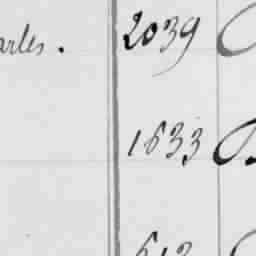 arles. 2039
1633